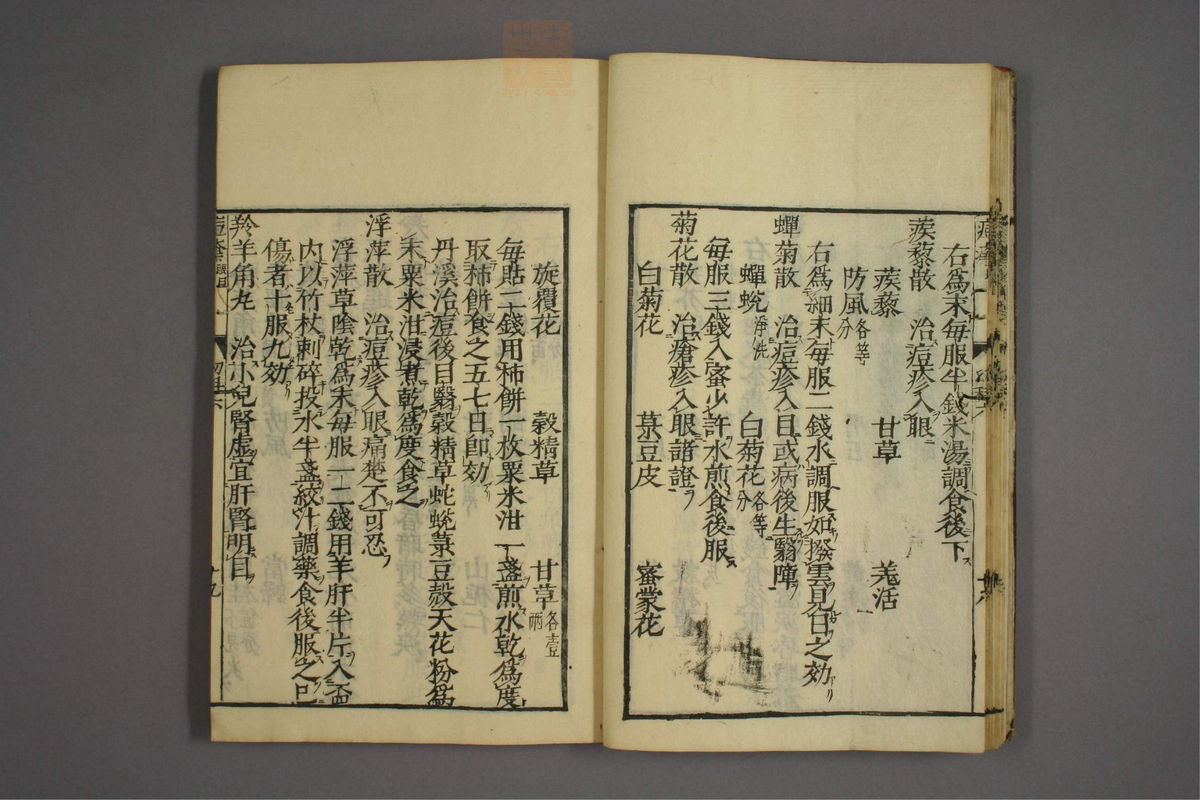 右為末每服半錢米湯調食後下
蒺藜散　治痘疹入眼
蒺藜　甘草　羗活
防風各等分
右為細末每服二錢水調服如撥雲見日之効
蟬菊散　治痘疹入目或病後生翳障
蟬蛻淨洗　白菊花各等分
每服三錢入蜜少許水煎食後服
菊花散　治瘡疹入眼諸證
白菊花　菉豆皮　密蒙花
旋覆花　穀精草　甘草各壹兩
每貼二錢用柿餅一枚粟米泔一盞煎水乾為度
取柿餅食之五七日卽効
丹溪治痘後目翳穀精草蛇蛻菉豆殼天花粉為
末粟米泔浸煮乾為度食之
浮萍散　治痘疹入眼痛楚不可忍
浮萍草陰乾為末每服一二錢用羊肝半片入盃
内以竹杖刺碎投水半盞絞汁調藥食後服之已
傷者十服九効
羚羊角丸　治小兒腎虛宜肝腎明目